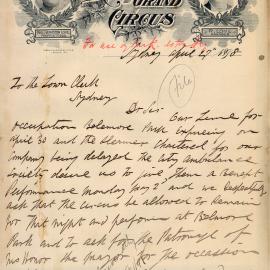 GRAND
CIRCUS
Sydney April 27th 1898
To the Town Clerk
Sydney
file
Dr Sir Our Lease for
occupation Belmore Park expireing on
April 30 and the Steamer Chartered for our
Company being delayed the City Ambulance
Society desire us to give them a Benefit
Performance Monday May 2nd and we Respectfully
ask that the circus be allowed to Remain
for that night and perform at Belmore
Park and to ask for the Patronage of
his Honor the Mayor for the occassion